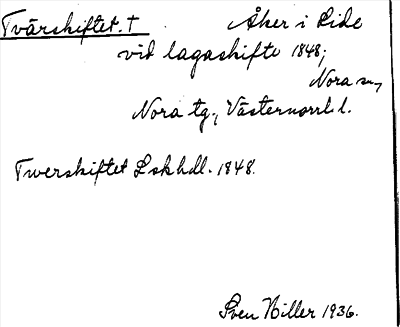 Tvärskiftet. † Åker i Lide
vid lagaskifte 1848;
Nora sn,
Nora tg., Västernorrl. l.
Twerskiftet Lskhdl. 1848.
Sven Hiller 1936.